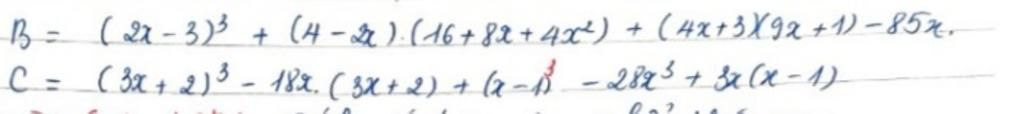 B = (2x - 3)³ + (4 - 2x).(16 + 8x + 4x²) + (4x + 3)(9x + 1) - 85x.
C = (3x + 2)³ - 18x.(3x + 2) + (x - 1)³ - 28x³ + 3x(x - 1)